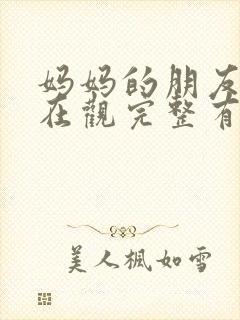 妈妈的朋友
在觀完整有
美人楓如雪